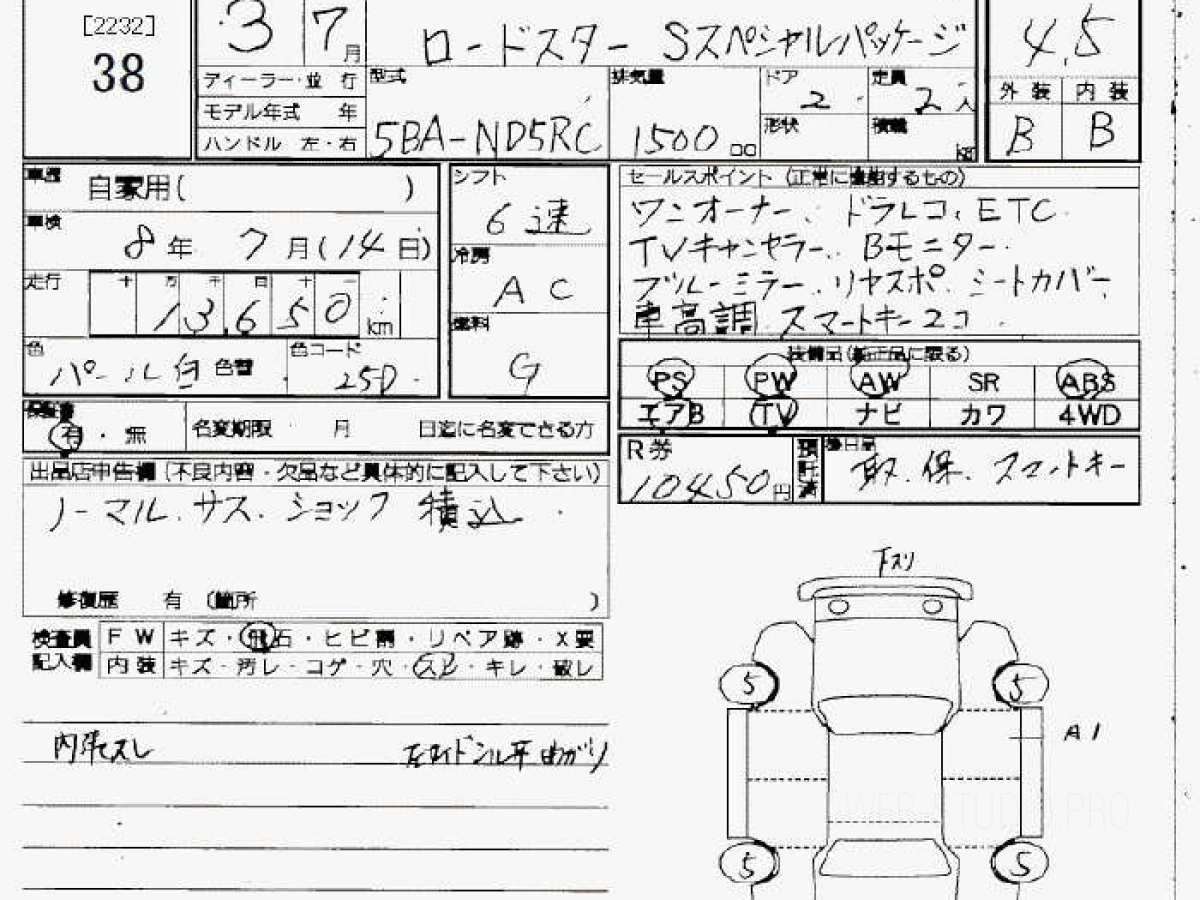 [2232]
38
3 7月
ロードスター Sスペシャルパッケージ
4.5
ディーラー・並行
モデル年式 年
ハンドル 左・右
型式
5BA-ND5RC
排気量
1500 cc
ドア
2
定員
2人
形状
積載
kg
外装 内装
B B
車歴
自家用( )
車検
8年 7月(14日)
走行
十 万 千 百 十 一
13,650 km
色
パール白 色替
色コード
25D
シフト
6速
冷房
AC
燃料
G
セールスポイント (正常に機能するもの)
ワンオーナー、ドラレコ、ETC
TVキャンセラー、Bモニター
ブルーミラー、リヤスポ、シートカバー
車高調 スマートキー2コ
装備品(純正品に限る)
PS PW AW SR ABS
エアB TV ナビ カワ 4WD
保証書
有・無
名変期限 月 日迄に名変できる方
R券
10450円
預託済
後日品
取、保、スマートキー
出品店申告欄(不良内容・欠品など具体的に記入して下さい)
ノーマル、サス、ショック 積込
修復歴 有 (箇所 )
検査員記入欄
FW キズ・飛石・ヒビ割・リペア跡・X要
内装 キズ・汚レ・コゲ・穴・スレ・キレ・破レ
内張スレ
下スリ
5 5
A1
5 5
WEB STUDIA PRO